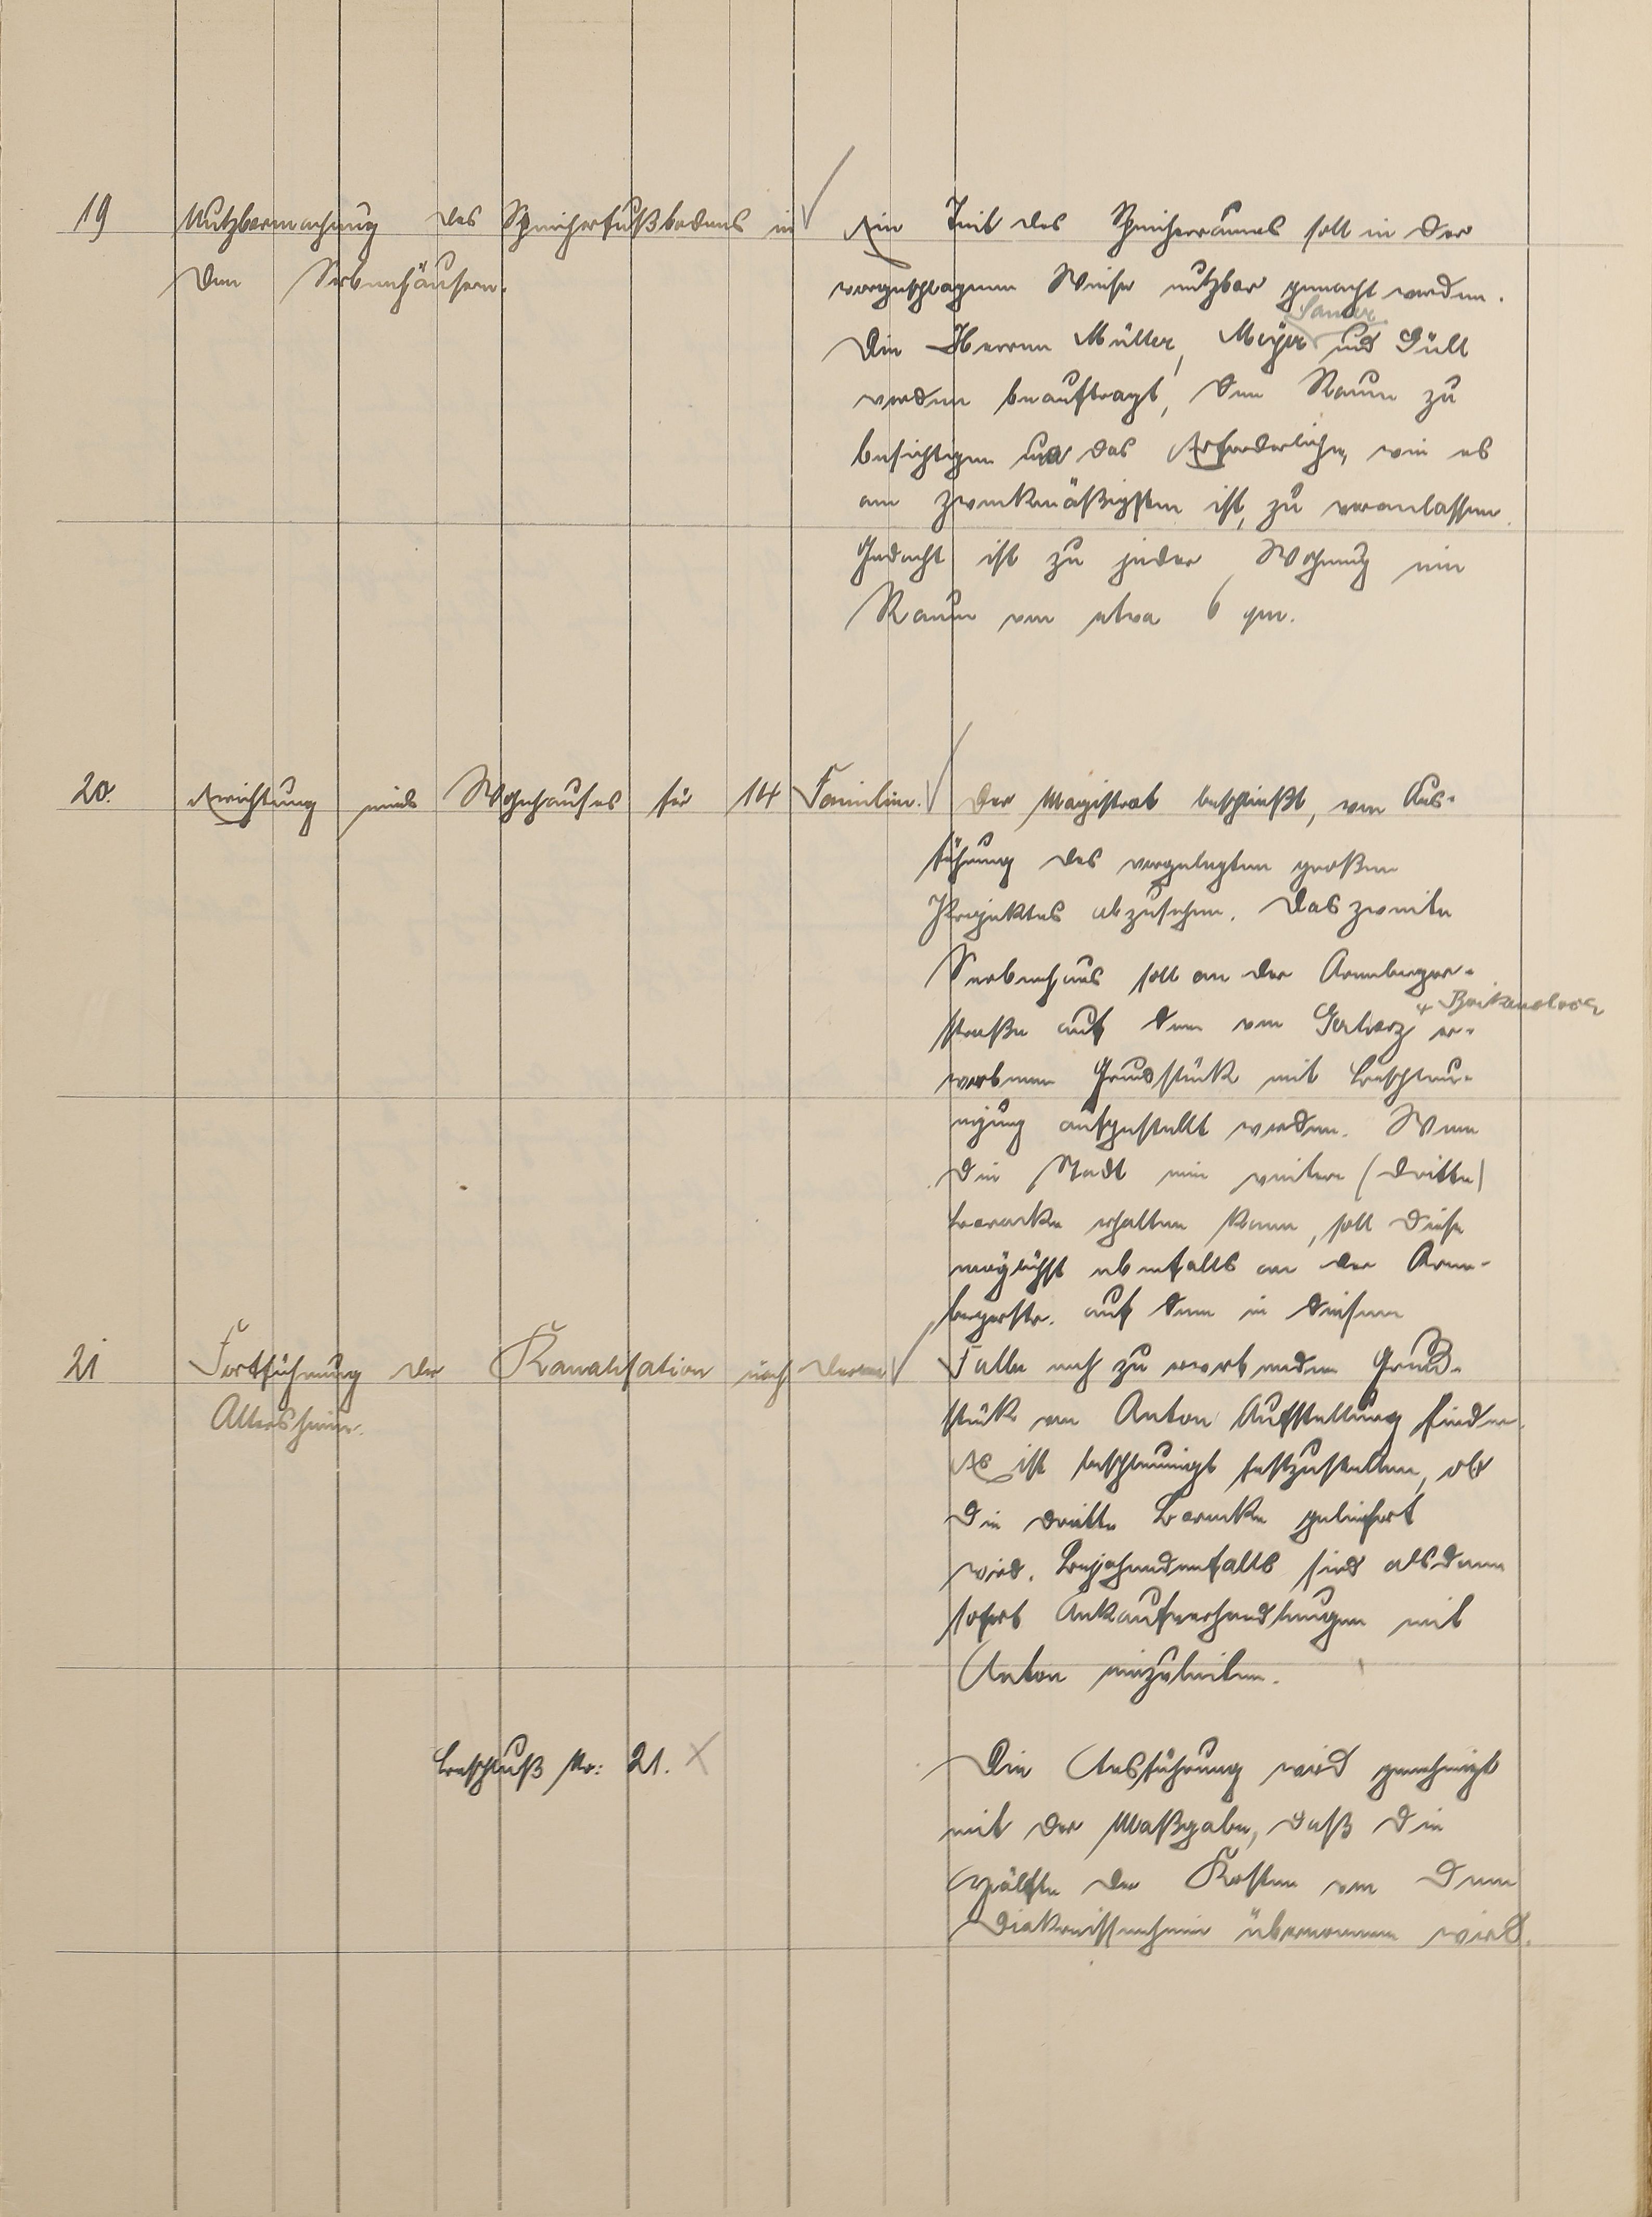 19 Nutzbarmachung des Speicherfußbodens in
den Serbenhäusern.
Ein Teil des Speicherraumes soll in der
vorgeschlagenen Weise nutzbar gemacht werden.
Sauer
Die Herren Müller, Meyer und Gült
werden beauftragt, den Raum zu
besichtigen und das Erforderliche, wie es
am zweckmäßigsten ist, zu veranlassen.
Gedacht ist zu jeder Wohnung ein
Raum von etwa 6 qm.
20. Errichtung eines Wohnhauses für 14 Familien.
Der Magistrat beschließt, von Aus-
führung des vorgelegten großen
Projektes abzusehen. Das zweite
Serbenhaus soll an der Arenberger-
straße auf dem von Gerharz er-
worbenen Grundstück mit Beschleu-
nigung aufgestellt werden. Wenn
die Stadt eine weitere (dritte)
Baracke erhalten kann, soll diese
möglichst ebenfalls an der Aren-
bergerstr. auf dem in diesem
Falle noch zu erwerbenden Grund-
stück von Anton Aufstellung finden.
Es ist beschleunigt festzustellen, ob
die dritte Baracke geliefert
wird. Bejahendenfalls sind alsdann
sofort Ankaufverhandlungen mit
Anton einzuleiten.
21 Fortführung der Kanalisation nach dem
Altersheim.
Beschluß Nr: 21.
Die Ausführung wird genehmigt
mit der Maßgabe, daß die
Hälfte der Kosten von dem
Diakonissenheim übernommen wird.